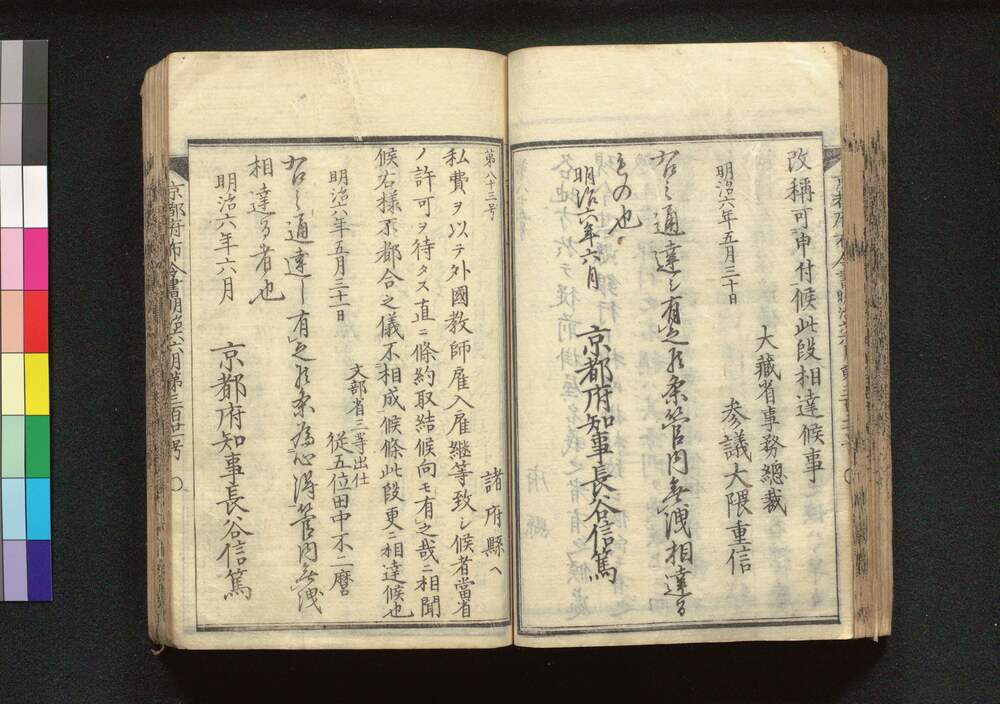 改稱可申付候此段相達候事
明治六年五月三十日
大藏省事務總裁
参議大隈重信
右之通達シ有之候条管内無洩相達る
もの也
明治六年六月
京都府知事長谷信篤
第八十三号
諸府縣へ
私費ヲ以テ外國教師雇入雇継等致シ候者當省
ノ許可ヲ待タス直ニ條約取結候向モ有之哉ニ相聞
候右様不都合之儀不相成候條此段更ニ相達候也
明治六年五月三十一日
文部省三等出仕
従五位田中不二麿
右之通達し有之候条為心得管内無洩
相達る者也
明治六年六月
京都府知事長谷信篤
京都府布令書明治六年六月第三百廿号